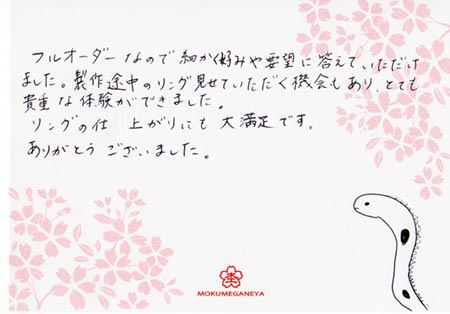 フルオーダーなので細かく好みや要望に答えていただけ
ました。製作途中のリング見せていただく機会もあり、とても
貴重な体験ができました。
リングの仕上がりにも大満足です。
ありがとうございました。
MOKUMEGANEYA